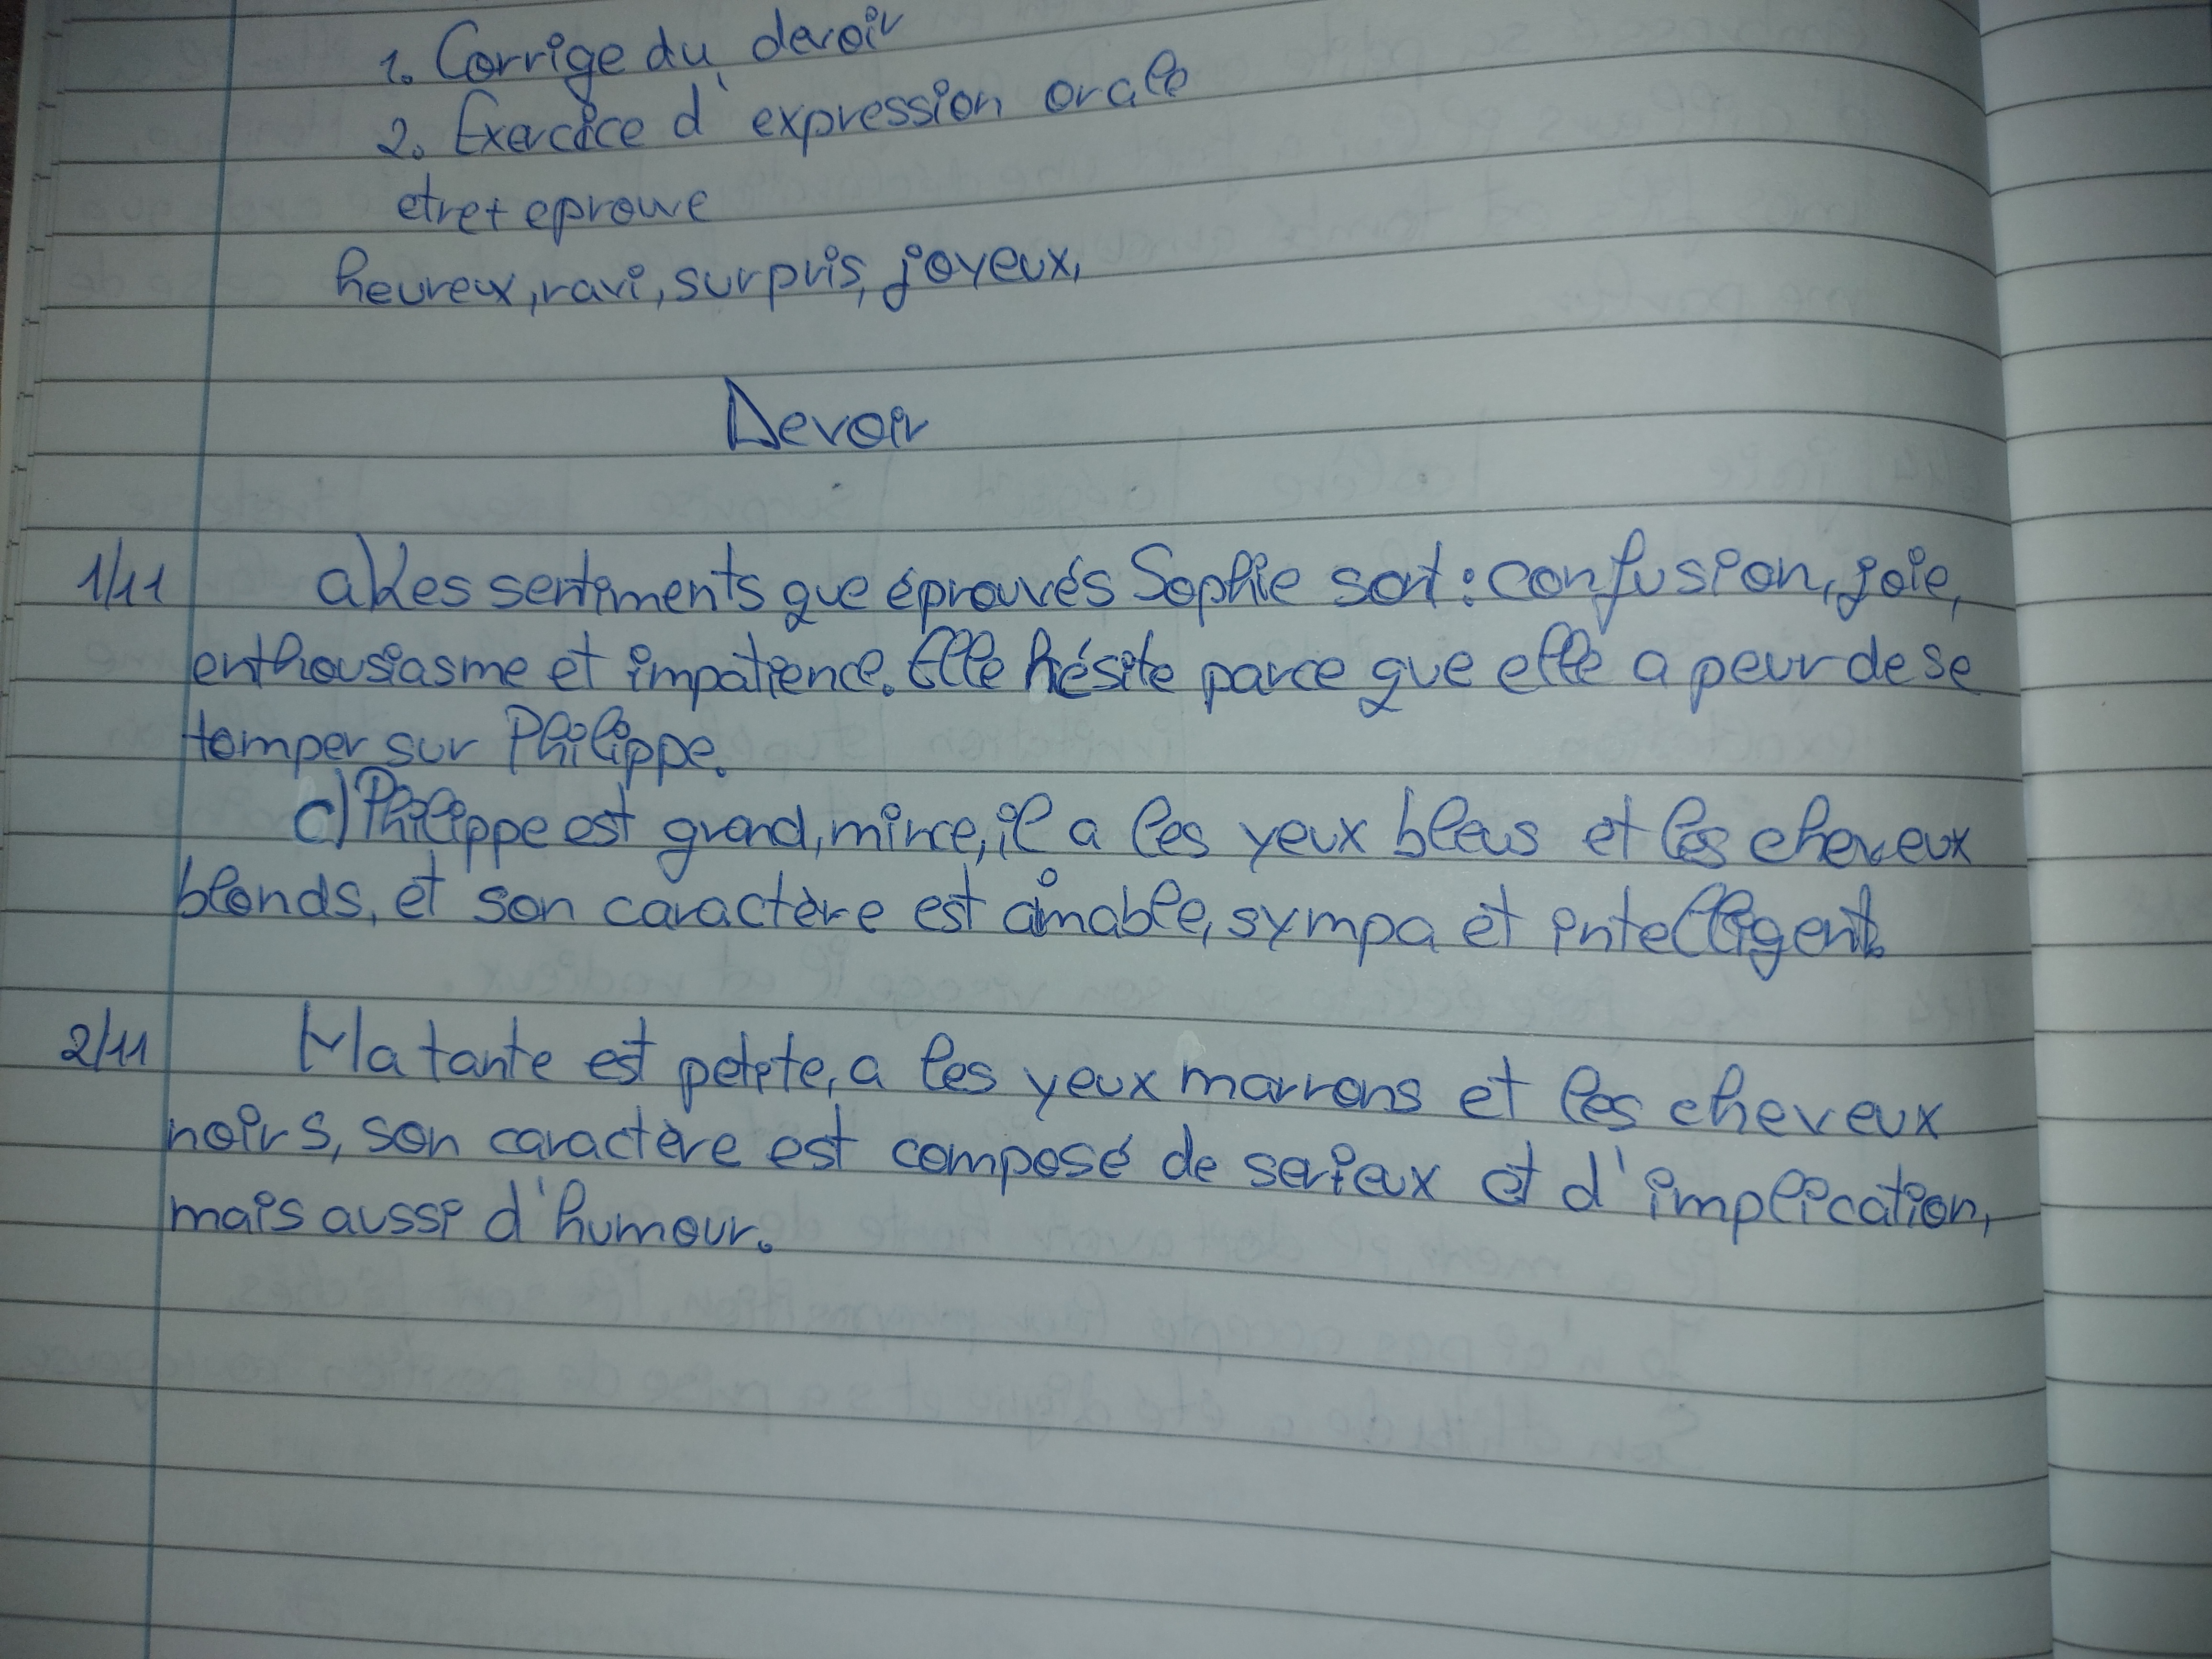 1. Corrige du devoir
2. Exercice d'expression orale
etre + eprouve
heureux, ravi, surpris, joyeux,
Devoir
1/11 a) Les sentiments que éprouvés Sophie sont: confusion, joie,
enthousiasme et impatience. Elle hésite parce que elle a peur de se
tomper sur Philippe.
c) Philippe est grand, mince, il a les yeux bleus et les cheveux
blonds, et son caractère est aimable, sympa et intelligent.
2/11 Ma tante est petite, a les yeux marrons et les cheveux
noirs, son caractère est composé de serieux et d'implication,
mais aussi d'humour.